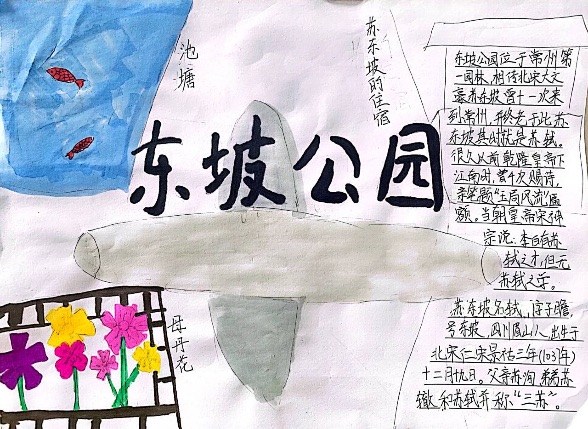 池塘
苏东坡的住宿
东坡公园
牡丹花
东坡公园位于常州第
一园林,相传北宋大文
豪苏东坡曾十一次来
到常州,并终老于此.苏
东坡其时就是苏轼。
很久以前乾隆皇帝下
江南时,曾4次赐诗,
亲笔题“玉局风流”匾
额。当朝皇帝宋神
宗说:李白有苏
轼之才,但无
苏轼之学。
苏东坡名轼,字子瞻,
号东坡,四川眉山人,出生于
北宋仁宗景祐三年(1037年)
十二月十九日。父亲苏洵,弟苏
辙和苏轼并称“三苏”。